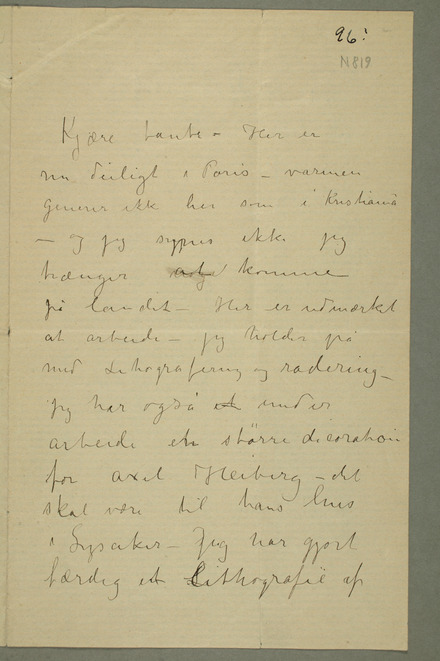 96!
N 819
Kjære tante – Her er
nu deiligt i Paris – varmen
generer ikke her som i Kristiania
– og jeg synes ikke jeg
trænger komme
på landet – Her er udmærket
at arbeide – jeg holder på
med Lithografering og radering –
jeg har også et under
arbeide en större decoration
for Axel Heiberg – det
skal være til hans hus
i Lysaker – Jeg har gjort
færdig et Lithografie af